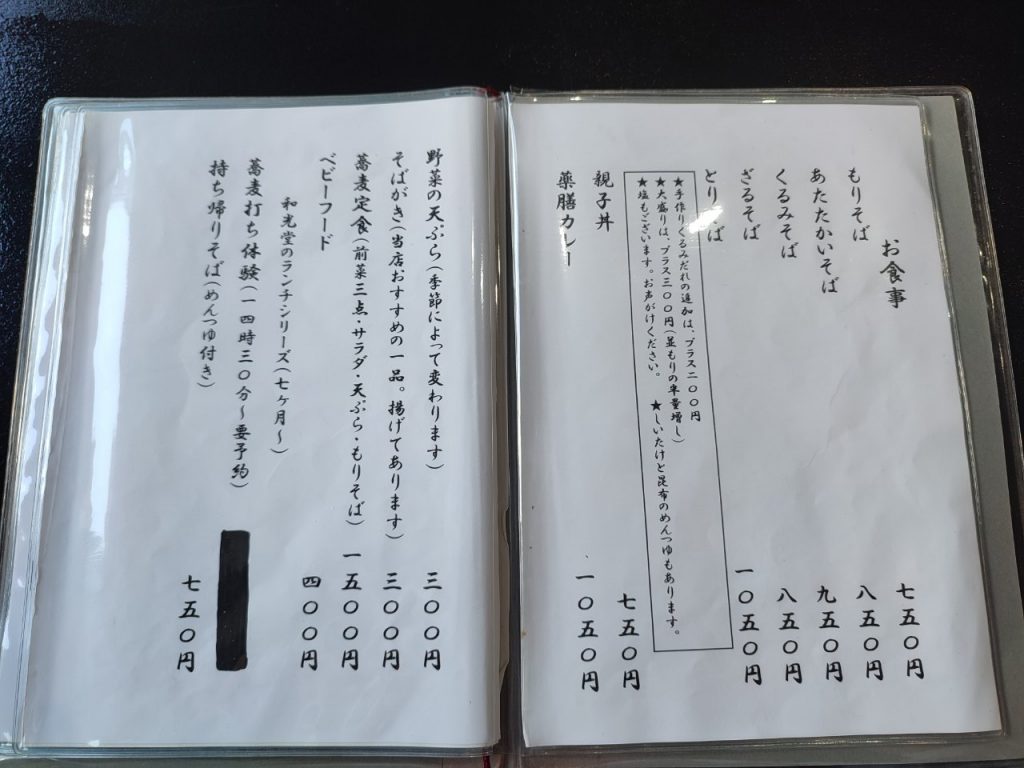 お食事
もりそば 七五〇円
あたたかいそば 八五〇円
くるみそば 九五〇円
ざるそば 八五〇円
とりそば 一〇五〇円
★手作りくるみだれの追加は、プラス二〇〇円
★大盛りは、プラス三〇〇円(並もりの半量増し)
★塩もございます。お声がけください。 ★しいたけと昆布のめんつゆもあります。
親子丼 七五〇円
薬膳カレー 一〇五〇円
野菜の天ぷら(季節によって変わります) 三〇〇円
そばがき(当店おすすめの一品。揚げてあります) 三〇〇円
蕎麦定食(前菜三点・サラダ・天ぷら・もりそば) 一五〇〇円
ベビーフード 四〇〇円
和光堂のランチンリーズ(七ヶ月~)
蕎麦打ち体験(一四時三〇分~要予約)
持ち帰りそば(めんつゆ付き) 七五〇円